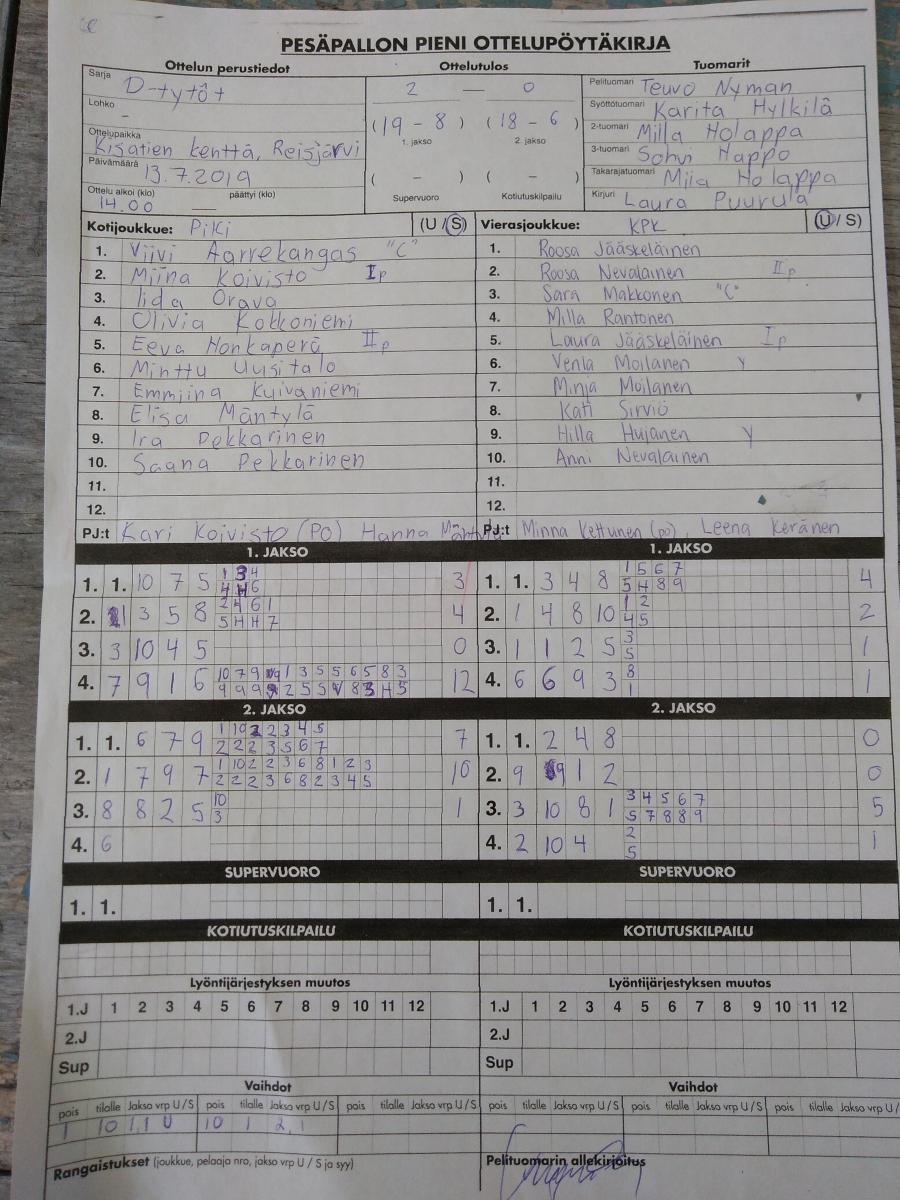 PESÄPALLON PIENI OTTELUPÖYTÄKIRJA
Ottelun perustiedot Ottelutulos Tuomarit
Sarja D-tytöt
Lohko -
Ottelupaikka Kisatien kenttä, Reisjärvi
Päivämäärä 13.7.2019
Ottelu alkoi (klo) päättyi (klo)
14.00 —
2 — 0
(19 - 8) (18 - 6)
1. jakso 2. jakso
( - ) ( - )
Supervuoro Kotiutuskilpailu
Pelituomari Teuvo Nyman
Syöttötuomari Karita Hylkilä
2-tuomari Milla Holappa
3-tuomari Sohvi Happo
Takarajatuomari Miia Holappa
Kirjuri Laura Puurula
Kotijoukkue: PiKi (U / S)
1. Viivi Aarrekangas "C"
2. Miina Koivisto Ip
3. Iida Orava
4. Olivia Kokkoniemi
5. Eeva Honkaperä IIp
6. Minttu Uusitalo
7. Emmiina Kuivaniemi
8. Elisa Mäntylä
9. Ira Pekkarinen
10. Saana Pekkarinen
11.
12.
PJ:t Kari Koivisto (PO) Hanna Mäntylä
Vierasjoukkue: KPK (U / S)
1. Roosa Jääskeläinen
2. Roosa Nevalainen IIp
3. Sara Makkonen "C"
4. Milla Rantonen
5. Laura Jääskeläinen Ip
6. Venla Moilanen Y
7. Minja Moilanen
8. Kati Sirviö
9. Hilla Hujanen Y
10. Anni Nevalainen
11.
12.
PJ:t Minna Kettunen (po) Leena Keränen
1. JAKSO
1. 1. 10 7 5 3
2. 1 3 5 8 4
3. 3 10 4 5 0
4. 7 9 1 6 12
1. JAKSO
1. 1. 3 4 8 1 5 6 7 4
5 H 8 9
2. 1 4 8 10 1 2 2
4 5
3. 1 1 2 5 3 1
5
4. 6 6 9 3 8 1
1
2. JAKSO
1. 1. 6 7 9 1 10 2 2 3 4 5 7
2 2 2 3 5 6 7
2. 1 7 9 7 1 10 2 2 3 6 8 1 2 3 10
2 2 2 3 6 8 2 3 4 5
3. 8 8 2 5 10 1
3
4. 6
2. JAKSO
1. 1. 2 4 8 0
2. 9 9 1 2 0
3. 3 10 8 1 3 4 5 6 7 5
5 7 8 8 9
4. 2 10 4 2 1
5
SUPERVUORO SUPERVUORO
1. 1. 1. 1.
KOTIUTUSKILPAILU KOTIUTUSKILPAILU
Lyöntijärjestyksen muutos Lyöntijärjestyksen muutos
1.J 1 2 3 4 5 6 7 8 9 10 11 12 1.J 1 2 3 4 5 6 7 8 9 10 11 12
2.J 2.J
Sup Sup
Vaihdot Vaihdot
pois tilalle Jakso vrp U / S pois tilalle Jakso vrp U / S pois tilalle Jakso vrp U / S pois tilalle Jakso vrp U / S pois tilalle Jakso vrp U / S pois tilalle Jakso vrp U /
1 10 1,1 U 10 1 2,1
Rangaistukset (joukkue, pelaaja nro, jakso vrp U / S ja syy) Pelituomarin allekirjoitus